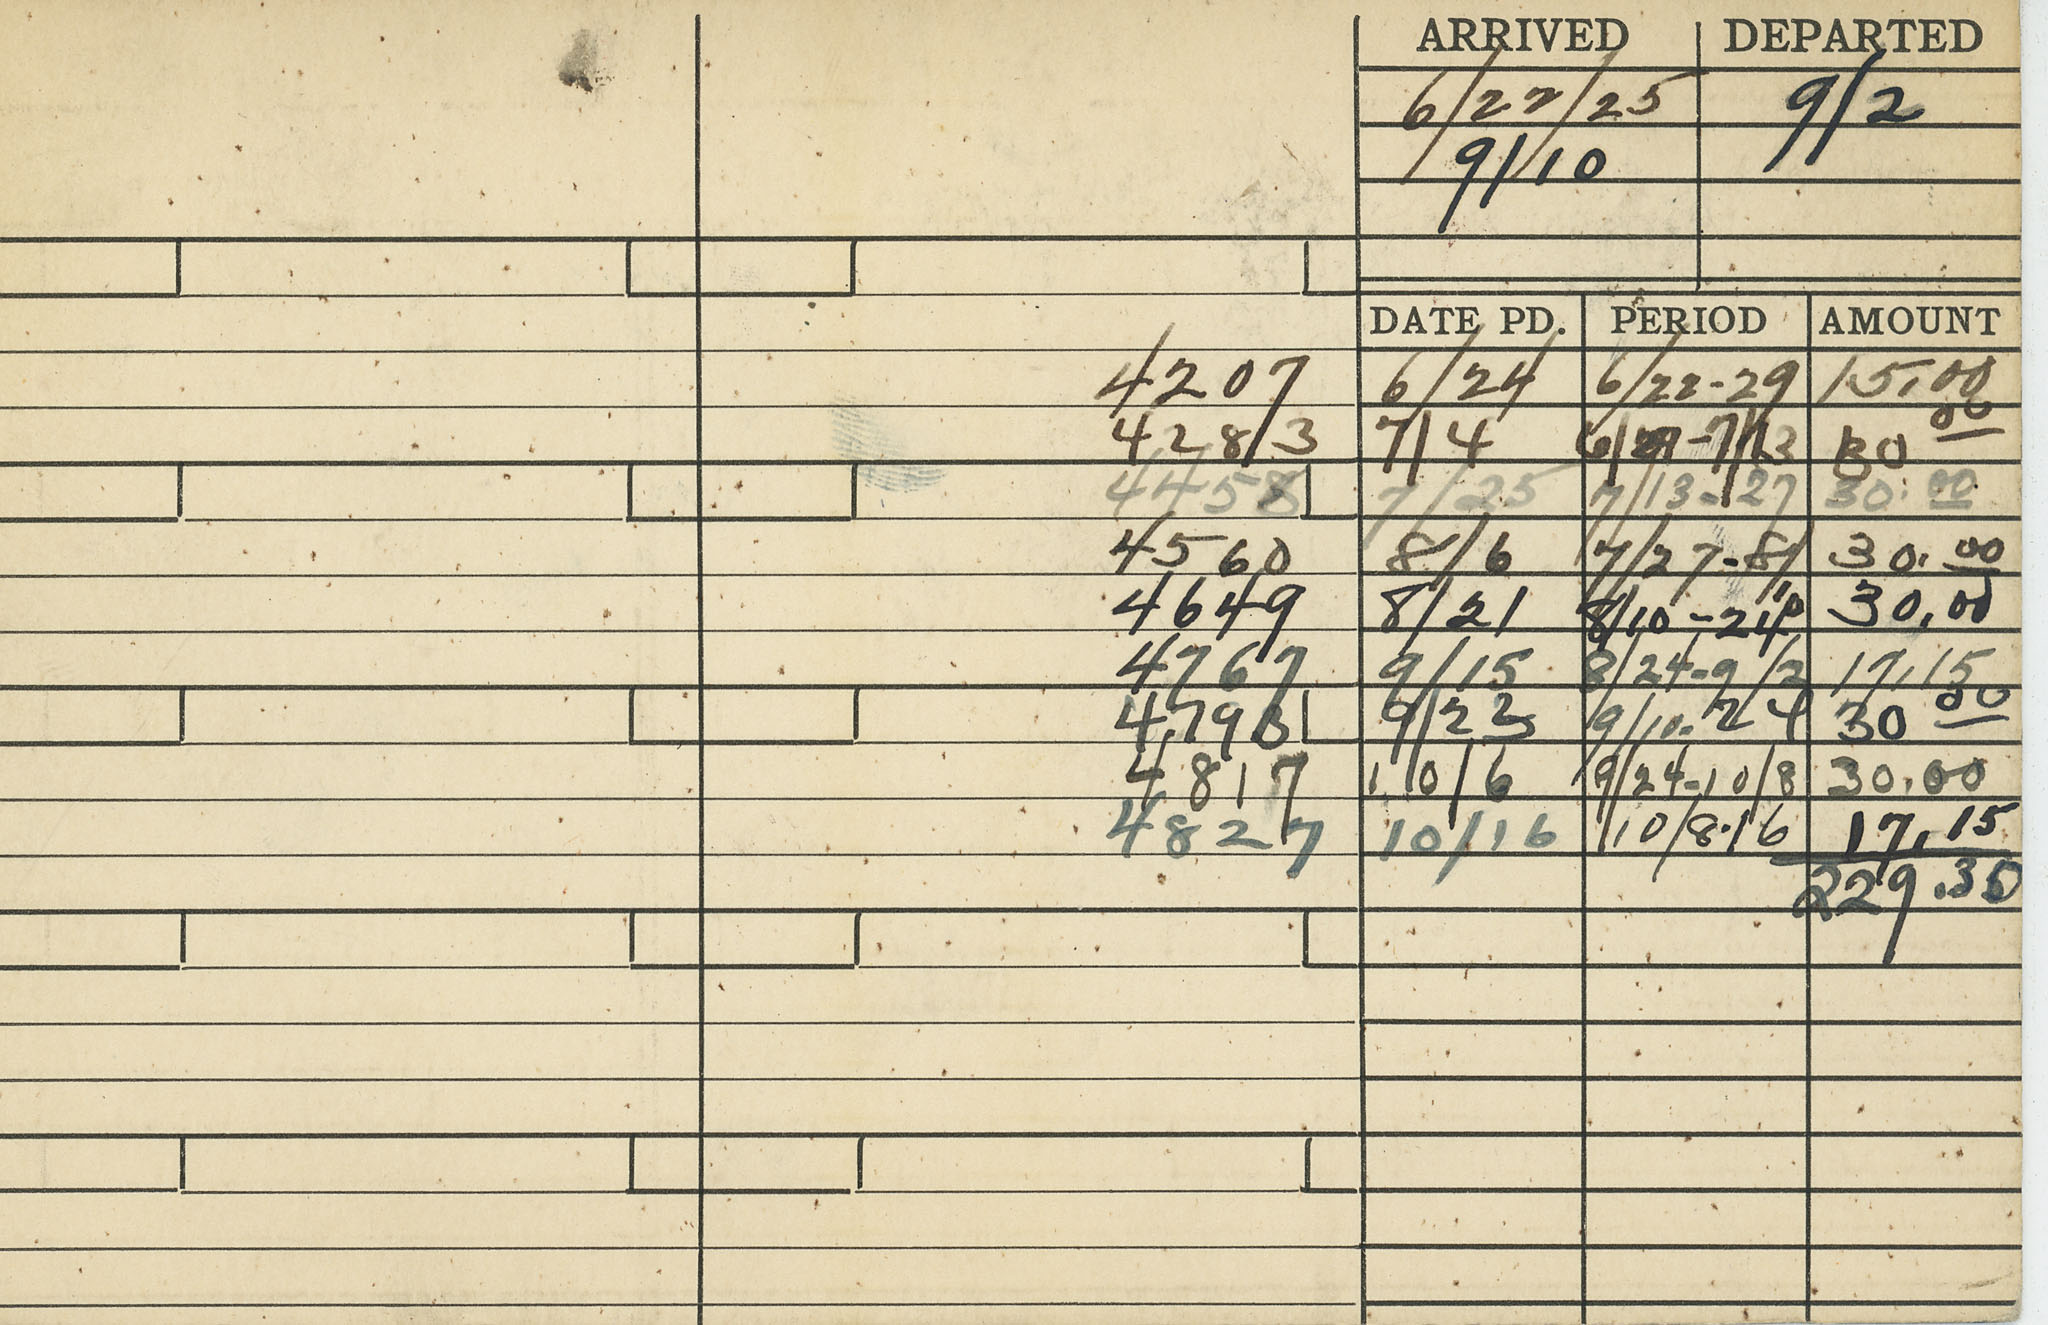 ARRIVED DEPARTED
6/22/25 9/2
9/10
DATE PD. PERIOD AMOUNT
4207 6/24 6/22-29 15.00
4283 7/4 6/29-7/13 30 00
4458 7/25 7/13-27 30.00
4560 8/6 7/27-8/10 30.00
4649 8/21 8/10-24 30.00
4767 9/15 8/24-9/2 17.15
4793 9/23 9/10-24 30 00
4817 10/6 9/24-10/8 30.00
4827 10/16 10/8-16 17.15
229.35